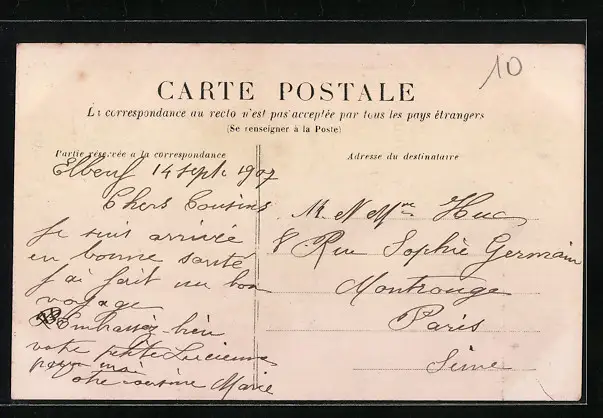 10
CARTE POSTALE
La correspondance au recto n'est pas acceptée par tous les pays étrangers
(Se renseigner à la Poste)
Partie réservée a la correspondance
Adresse du destinataire
Elbeuf 14 sept 1907
Chers Cousins
Je suis arrivée
en bonne santé
j'ai fait un bon
voyage
Embrassez bien
votre petite Lucienne
pour moi
otre cousine Marie
M. N Mme Huc
8 Rue Sophie Germain
Montrouge
Paris
Seine